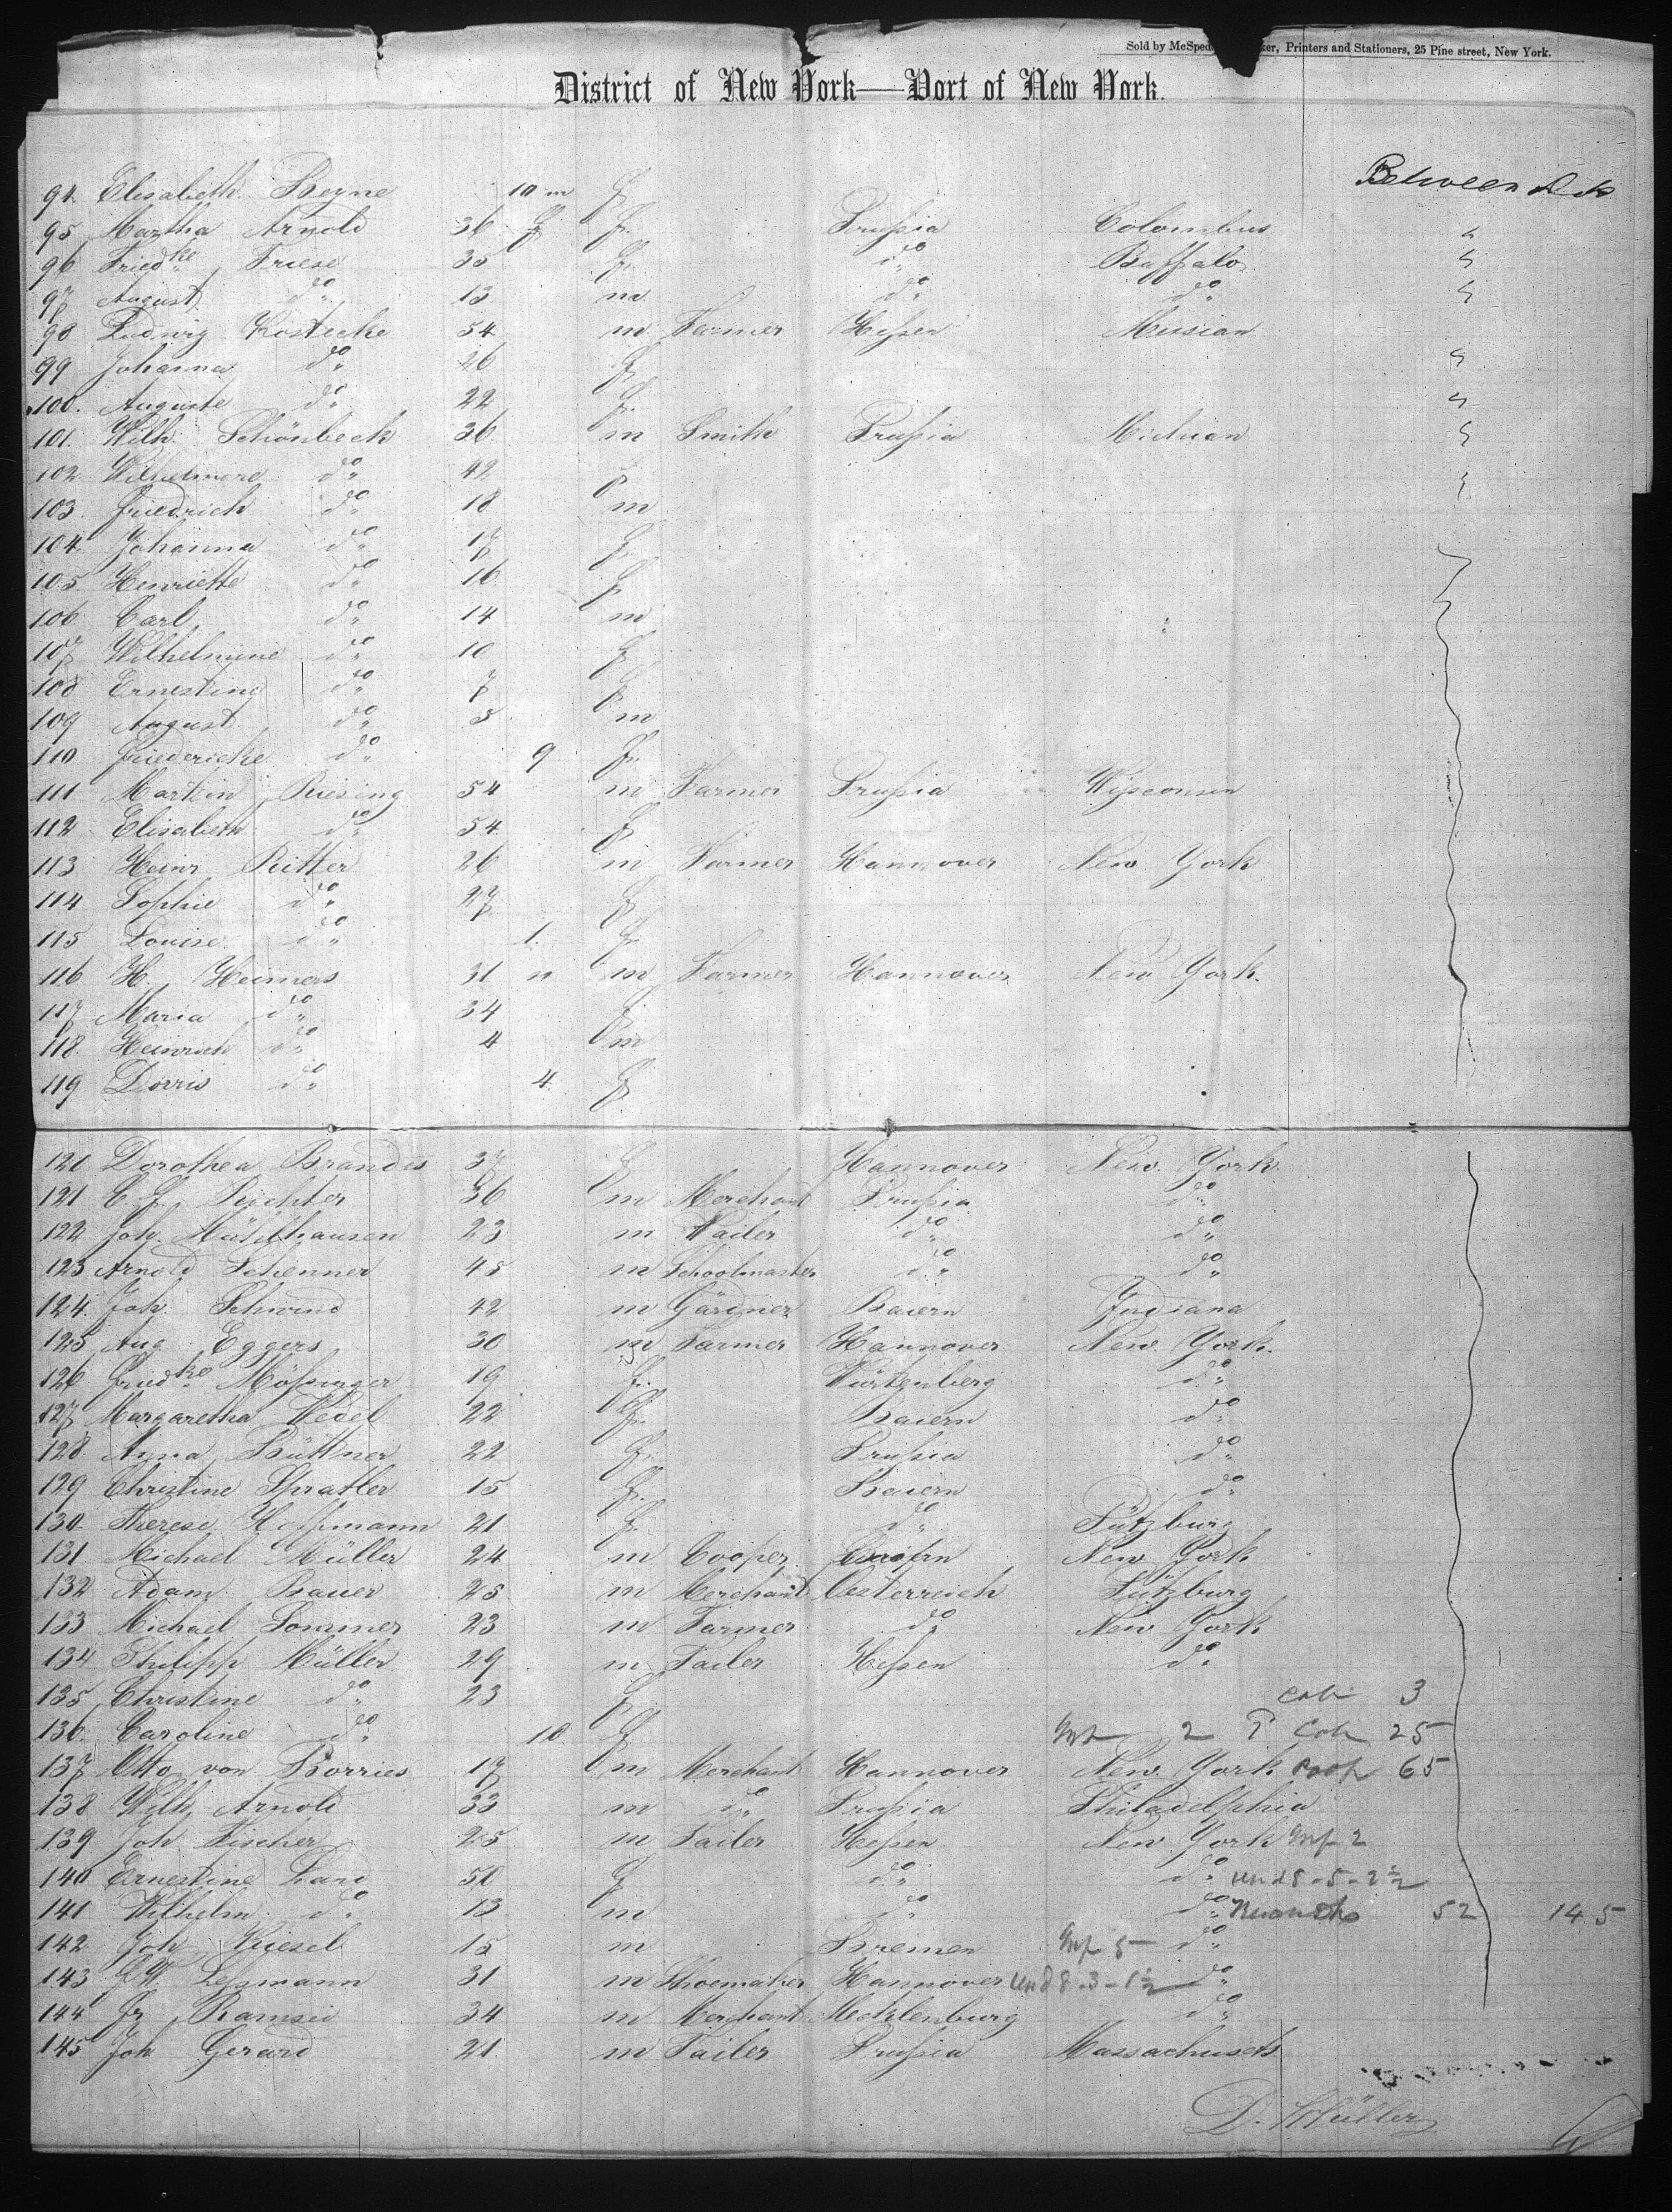 Sold by McSped ker, Printers and Stationers, 25 Pine street, New York.
District of New York—Port of New York.
94. Elisabeth Beyne 10 m f Between Dck
95 Martha Arnold 36 f Prußia Colombus "
96 Friedke Friese 35 f. do Buffalo "
97 August do 13 m do do "
98 Ludwig Kostecke 54 m Farmer Heßen
99 Johanna do 26 f "
100. Auguste do 22 f. "
101. Wilh. Schönbeck 36 m Smith Prußia Michian "
102 do 42 f
103. Friedrich do 18 m
104. Johanna do 17 f
105. Henriette do 16 f
106. Carl do 14 m
107 Wilhelmine do 10 f
108 Ernestine do 7 f
109 August do 5 m
110 Friedericke do 9 f.
111 Martin Riesing 54 m Farmer Prußia Wisconsin
112 Elisabeth do 54 f
113 Heinr Ritter 26 m Farmer Hannover New York
114 Sophie do 27 f
115 Louise do 1. f
116 H. Heimers 31 m Farmer Hannover New York.
117 Maria do 34 f
118. Heinrich do 4 m
119 Dorris do 4. f
121 Dorothea Brandes 37 f Hannover New York
121 C. F. Richter 36 m Merchant Prußia do
122 Joh. Mühlhausen 23 m Tailer do do
123 Arnold Schenner 45 m Schoolmaster do do
124. Joh. Schwind 42 m Gärdner Baiern Indiana
125 Aug Eggers 30 m Farmer Hannover New York.
126 Friedke Mößinger 19 f. Würtenberg do
127 Margaretha Wedel 22 f. Baiern do
128. Anna Büttner 22 f. Prußia do
129 Christine Spratler 15 f. Baiern do
130. Therese Hoffmann 21 f. do Pützburg
131. Michael Müller 24 m Cooper Baiern New York
132 Adam Bauer 25 m Merchant Oesterreich Pützburg
133 Michael Sommer 23 m Farmer do New York
134 Philipp Müller 29 m Tailer Heßen do
135 Christine do 23 f Cab 3
136. Caroline do 10 f 2 Cab 25
137 Otto von Borries 17 m Merchant Hannover New York 65
138 Wilh. Arnold 33 m do Prußia Philadelphia
139 Joh Fischer 25 m Tailer Heßen New York Inf 2
140 Ernestine Land 50 f do do und 8 - 5 - 2 1/2
141 Wilhelm do 13 m do do 52 145
142 Joh Kiesel 15 m Bremen Inf 5 do
143 F. W. Leßmann 31 m Shoemaker Hannover und 8 - 3 - 1 1/2 do
144 Fr. Ramsei 34 m Merchant Mecklenburg do
145 Joh Gerard 21 m Tailer Prußia Massachusets
D. Müller